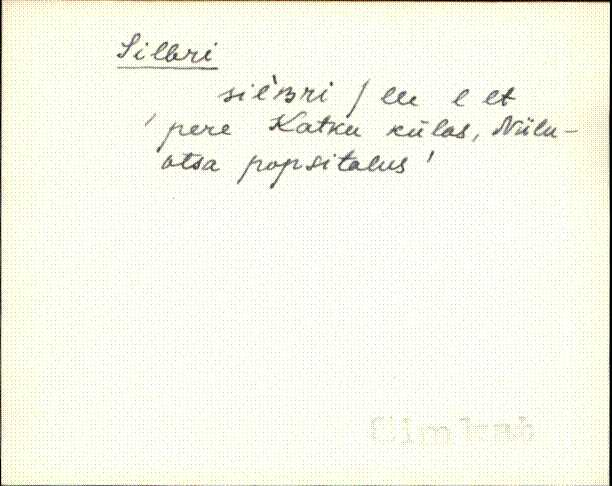 Silbri
silʙri / lle l lt
'pere Katku külas, Niilu-
otsa popsitalus'